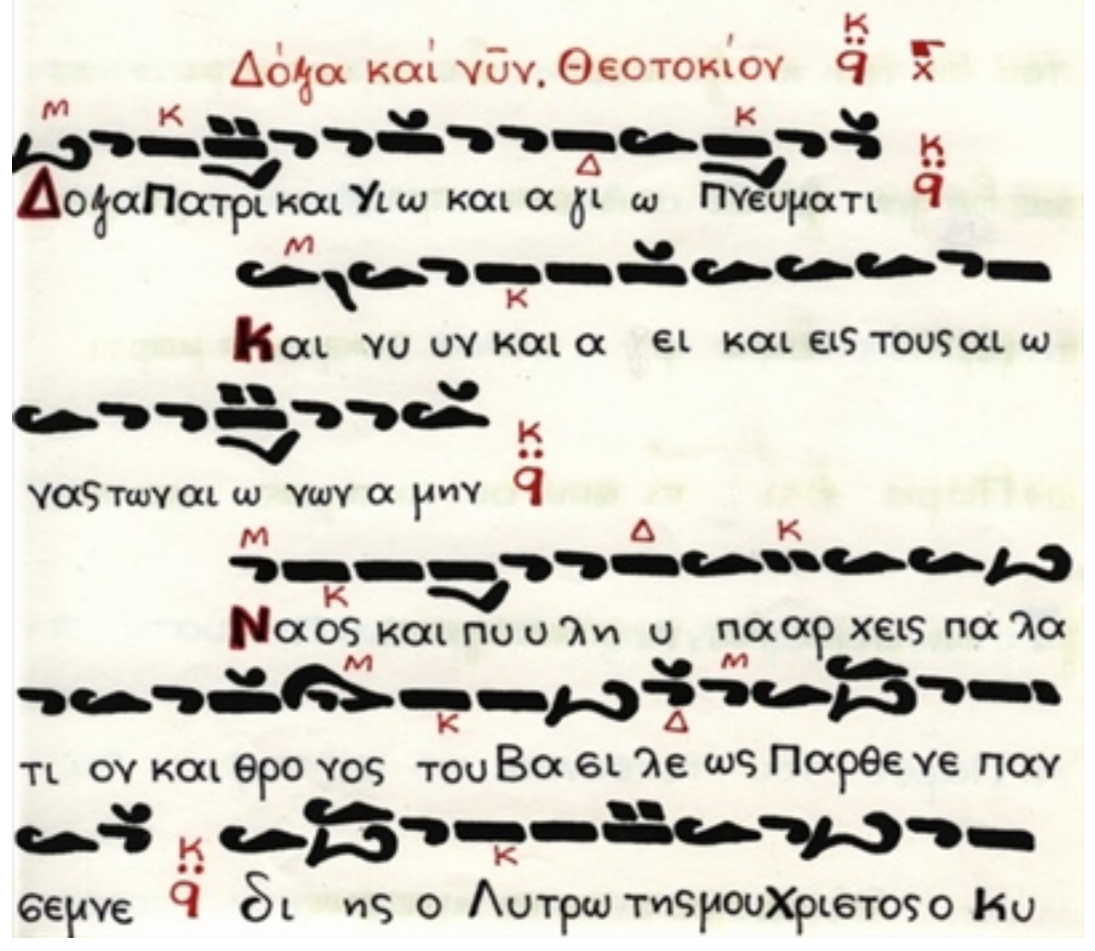 Δόξα καί νῦν. Θεοτοκίον
Δοξα Πατρι και Υι ω και α γι ω Πνευμα τι
Και νυ υν και α ει και εις τους αι ω
νας των αι ω νων α μην
Να ος και πυ υ λη υ πα αρ χεις πα λα
τι ον και θρο νος του Βα σι λε ως Παρθε νε παν
σεμνε δι ης ο Λυτρω της μου Χριστος ο Κυ